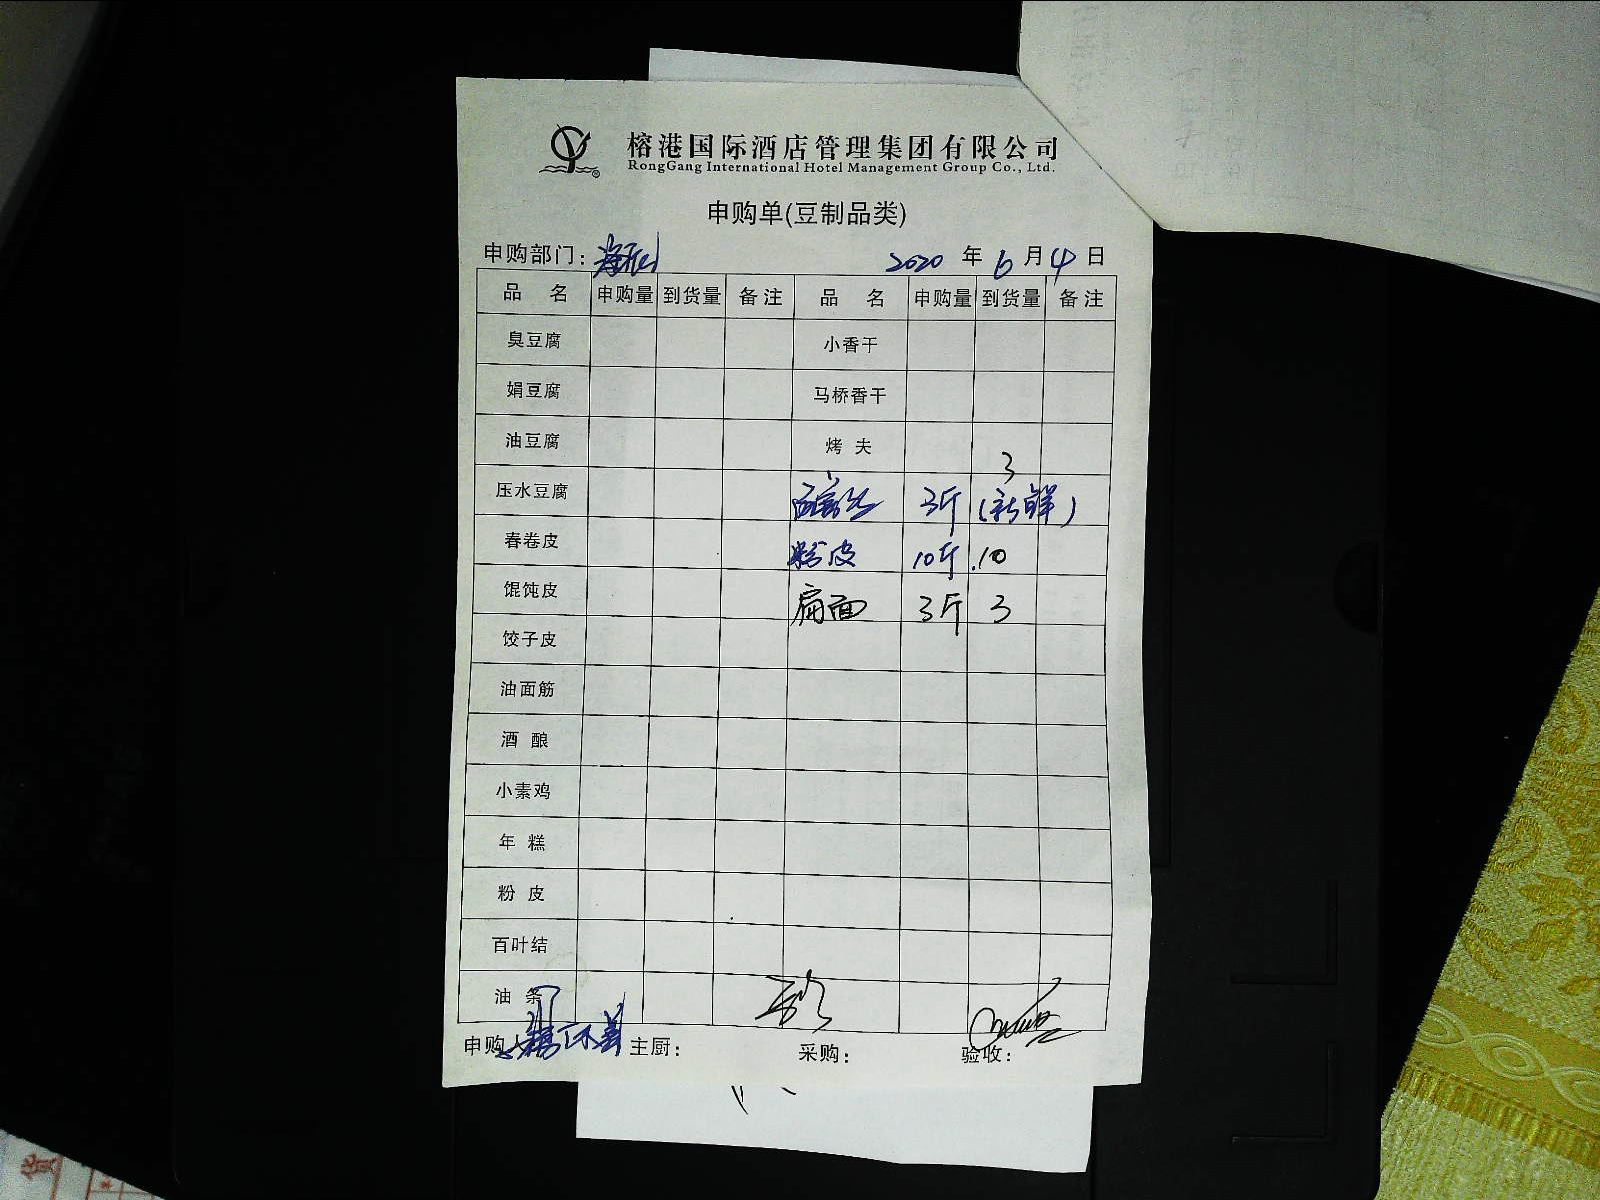 榕港国际酒店管理集团有限公司
RongGang International Hotel Management Group Co., Ltd.
申购单(豆制品类)
申购部门: 2020 年 6 月 4 日
品 名 申购量 到货量 备注 品 名 申购量 到货量 备注
臭豆腐 小香干
娟豆腐 马桥香干
油豆腐 烤 夫 3
压水豆腐 3斤 (新鲜)
春卷皮 粉皮 10斤 10
馄饨皮 扁面 3斤 3
饺子皮
油面筋
酒 酿
小素鸡
年 糕
粉 皮
百叶结
油 条
申购人 主厨: 采购: 验收: